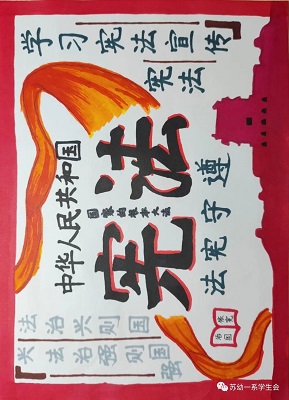 学习宪法宣传
宪法
中华人民共和国
宪法
国家的根本大法
遵守宪法
法治兴则国
兴法治强则国
强
苏幼一系学生会